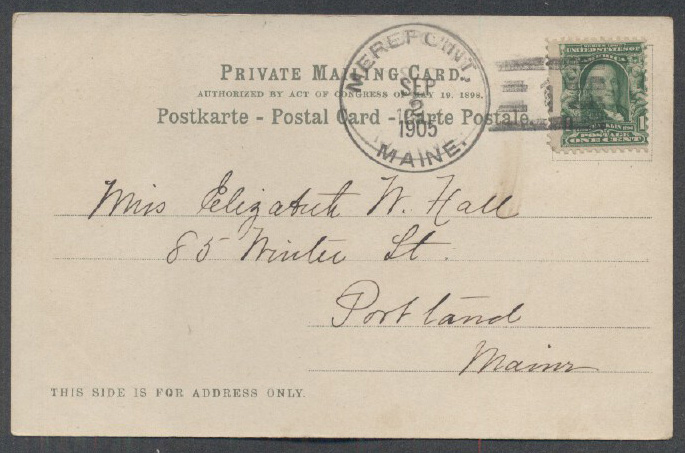 PRIVATE MAILING CARD.
AUTHORIZED BY ACT OF CONGRESS OF MAY 19, 1898.
Postkarte - Postal Card - Carte Postale
MEREPOINT,
SEP
2
1905
MAINE.
SERIES 1902
UNITED STATES OF
AMERICA
FRANKLIN
POSTAGE
1 ONE CENT 1
Miss Elizabeth W. Hall
85 Winter St.
Portland
Maine
THIS SIDE IS FOR ADDRESS ONLY.